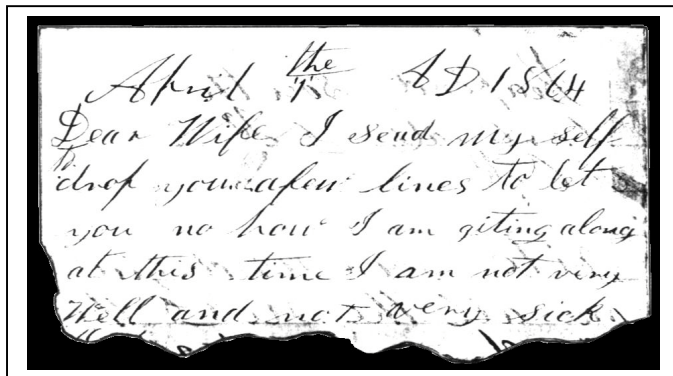 April the 1 AD 1864
Dear Wife I send my self
to drop you a few lines to let
you no how I am giting along
at this time I am not very
Well and not very sick